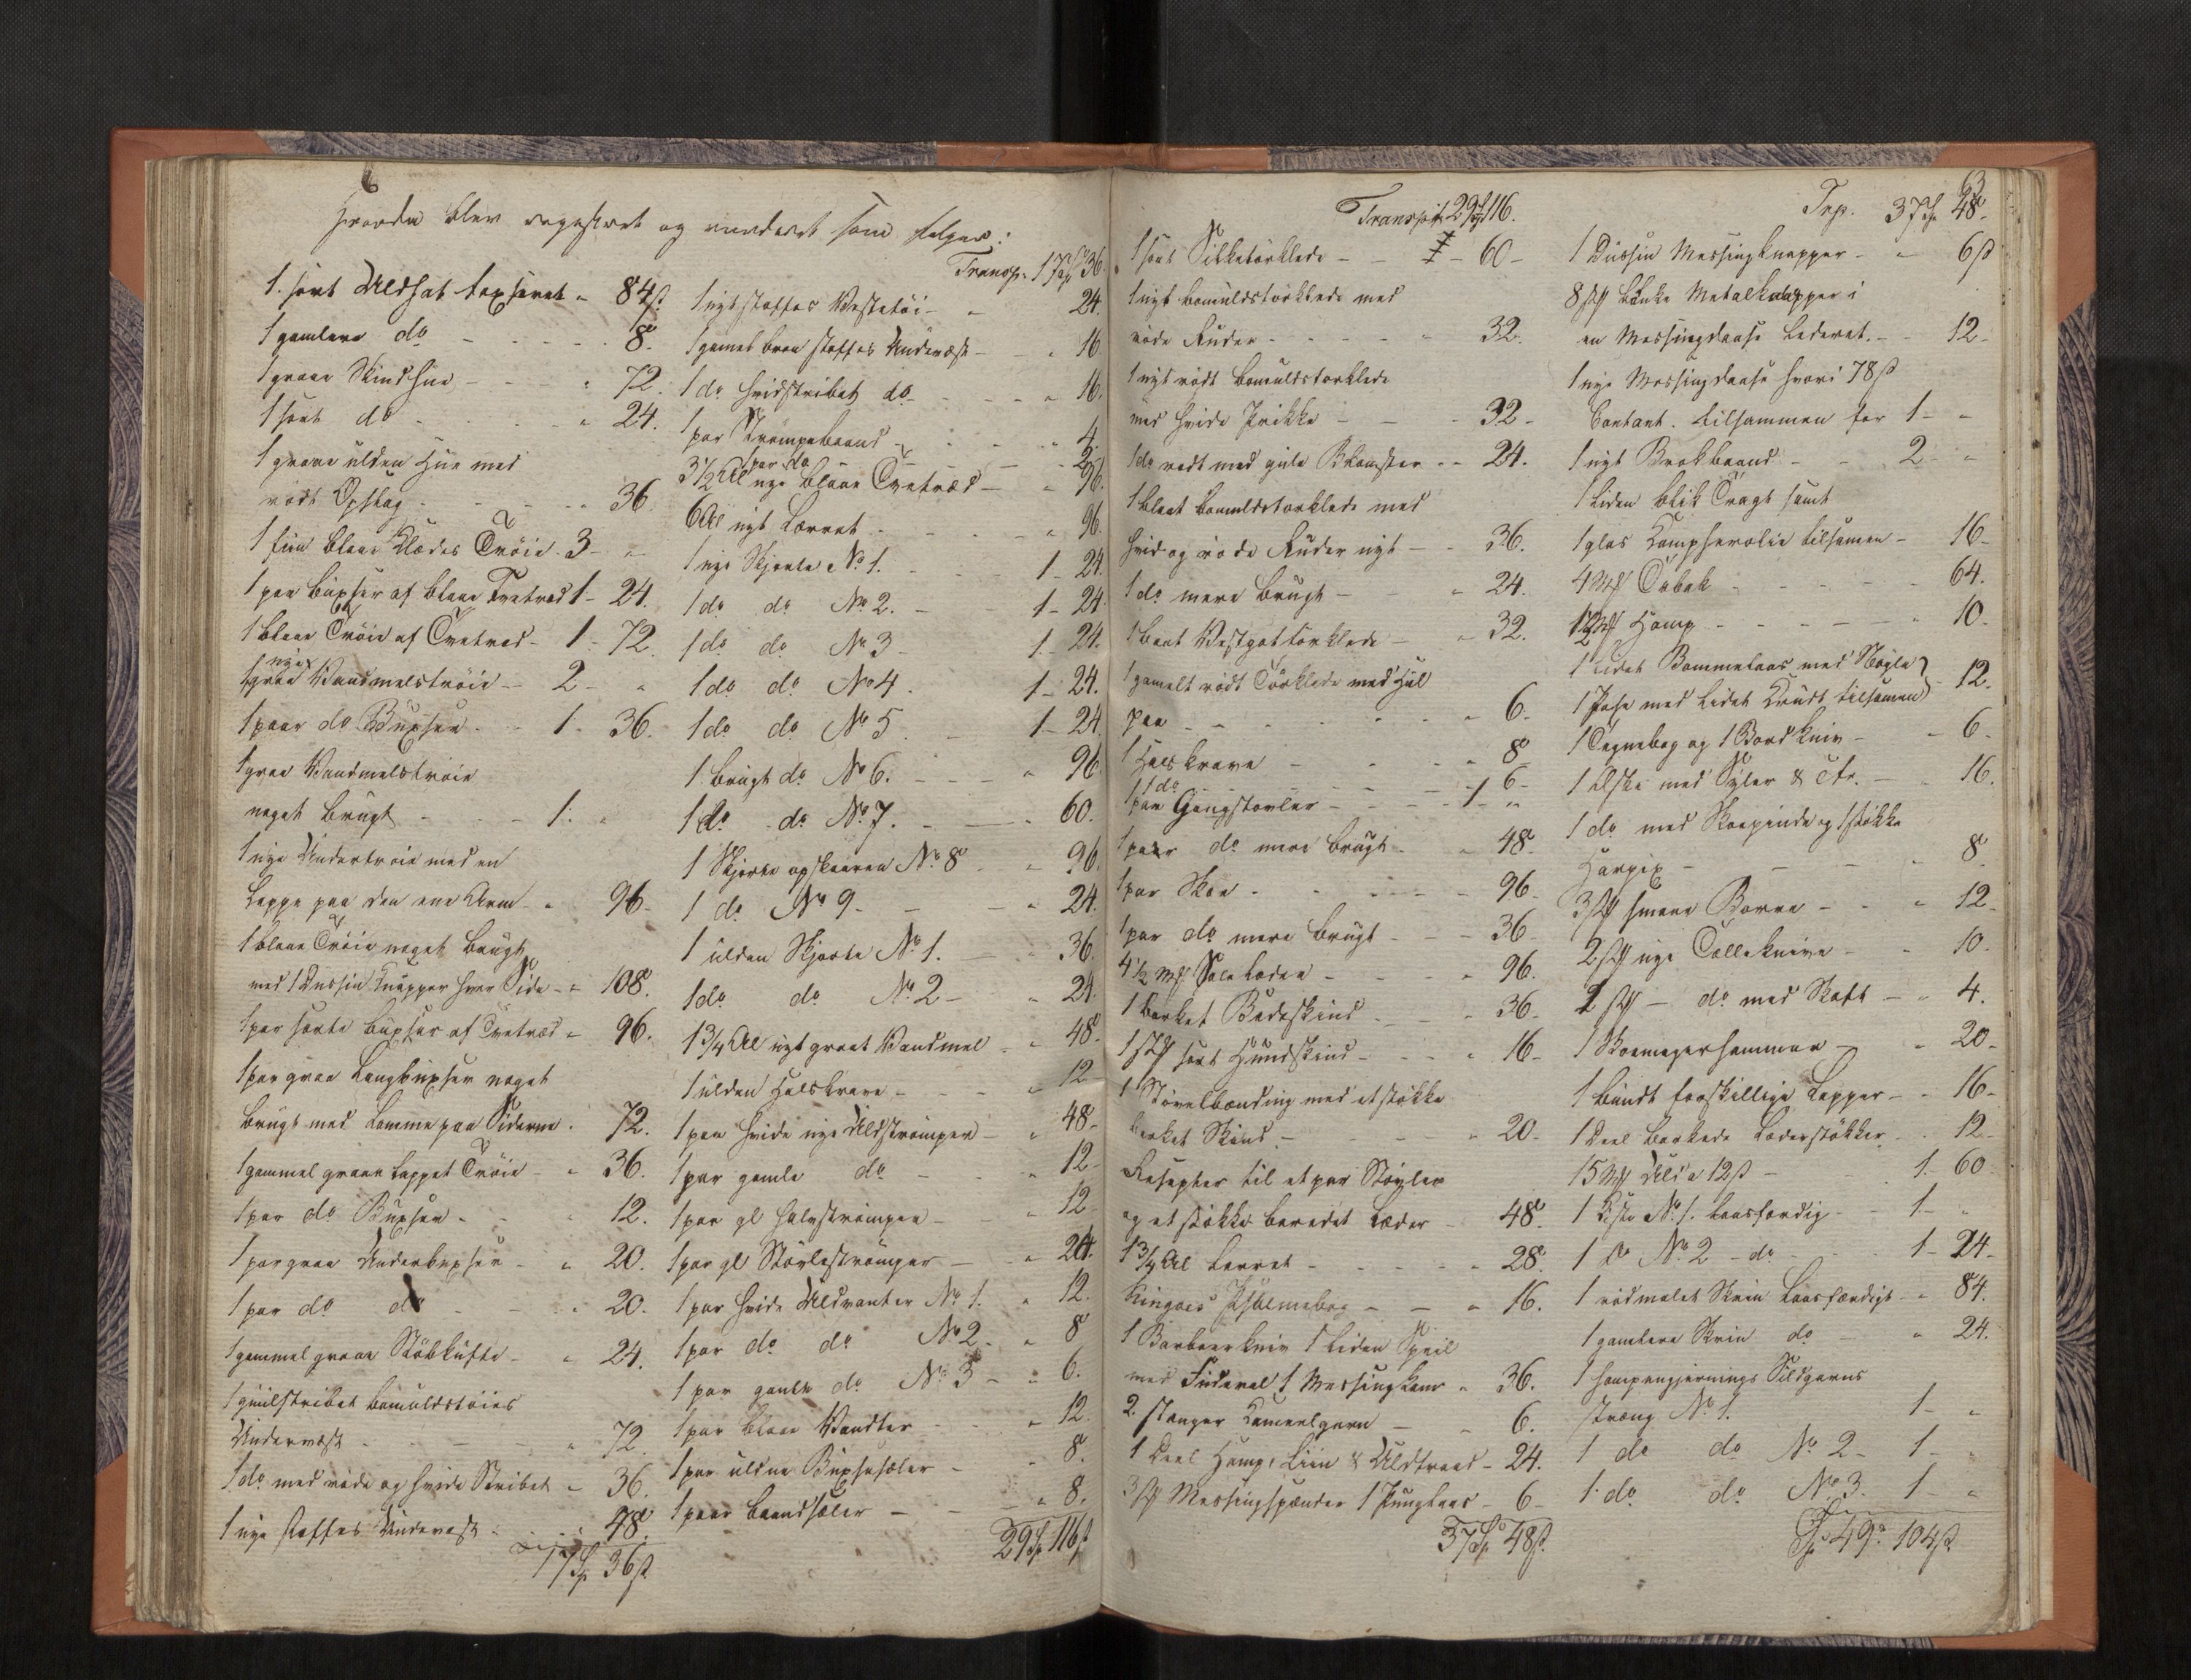 Hvorda blev registeret og vurderet som følger:
1. sort Uldhat taxseret " 84ß
1 gamlere do - - - - 8.
1 graae Skindhue - - " 72.
1 sort do - - - " 24.
1 graae ulden Hue med
rödt Opslag - - - - " 36.
1 fiin blaae Klædes Tröie - 3 - "
1 par Buxser af blaae Tvetræd 1 - 24.
1 blaae Tröie af Tvetræd - 1 - 72.
1 nye graa Vadmelströie - 2 - "
1 paar do Buxser - - 1 - 36.
1 graa Vadmelströie
noget brugt - - - 1. "
1 nye Undertröie med en
Lappe paa den ene Arm - " 96.
1 blaae Tröie noget brugt
med 1 Dussin Knapper hver Side - " 108.
1 par sorte Buxser af Tvetræd " 96.
1 par graae Langbuxser noget
brugt med Lomme paa Siderne . 72.
1 gammel graae lappet Tröie - " 36.
1 par do Buxser - - " 12.
1 par graae Underbuxser - " 20.
1 par do do - - " 20.
1 gammel graae Stöbkufte - " 24.
1 guulstribet bomuldstöies
Underväst - - - " 72.
1 do med röde og hvide Striber " 36.
1 nye stoffes Undervest - - " 48.
17 Sp 36ß
Transp. 17 Sp 36.
1 nyt stoffes Vestetöi - " 24.
1 gamel brun stoffes Undervæst - " 16.
1 do hvidstribet do - - " 16.
1 par Strömpebaand - - " 4.
par do - - - 2.
3 1/2 Al nye blaae Tvetræd - " 96.
6 Al nyt Lærret - - - " 96.
1 nye Skjorte No 1. - - 1 - 24.
1 do do No 2. - - 1 - 24.
1 do do No 3 - 1 - 24.
1 do do No 4 - 1 - 24.
1 do do No 5 - 1 - 24.
1 brugt do No 6. - - " 96.
1 do do No 7. - - " 60.
1 Skjorte opskaaren No 8 - " 96.
1 do No 9 - - " 24.
1 ulden Skjorte No 1. - " 36.
1 do do No 2 - " 24.
1 3/4 Al nyt graat Vadmel - " 48.
1 ulden Halskrave - - " 12
1 par hvide nye Uldströmper - " 48.
1 par gamle do - - " 12.
1 par gl halvströmper - " 12.
1 par gl Stövleströmper - " 24.
1 par hvide Uldvanter No 1. " 12.
1 par do do No 2 - " 8
1 par gamle do No 3 - " 6.
1 par blaae Vandter - - " 12.
1 par uldne Buxeseler - - 8.
1 paar baandseler - - " 8.
29 Sp 116ß
Transp: 29 Sp 116.
1 sort Silketörklede - - " 60 -
1 nyt bomuldstörklede med
röde Ruder - - - " 32.
1 nyt rödt bomuldstorklede
med hvide Prikke - - - 32 -
1 do rødt med gule Blomster - - 24.
1 blaat bomuldstorklede med
hvid og röde Ruder nyt - - 36.
1 do mere brugt - - " 24.
1 bont Vestgottörklede - " 32.
1 gamelt rödt Törklede med Hul
paa - - - - " 6.
1 Halskrave - - " 8
1 do - - - 6 -
1 par Gangstövler - - - 1 - "
1 paar do mere brugt - " 48.
1 par Skoe - - - 96 -
1 par do mere brugt - - 36 -
4 1/2 Mk Saaleleder - - " 96.
1 barket Bedeskind - - " 36 -
1 stk sort Hundskind - - " 16 -
1 Stövelbending med et støkke
barket Skind - - - " 20 -
Resepter til et par Støvler
og et støkke beredet Læder - 48.
1 3/4 Al Lerret - - - " 28.
Kingoes Psalmebog - - " 16.
1 Barbeerkniv 1 liden Speil
med Futeral 1 Messingkam " 36.
2. stanger Kameelgarn - " 6.
1 Deel Hamp, Liin & Uldtraad - 24.
3 stk Messingspænder 1 Punglaas - 6 -
37 Sp 48ß.
Trp. 37 Sp 48.
63
1 Dussin Messingknapper - " 6ß
8 stk blanke Metalknapper i
en Messingdaase Lederet. - - 12 -
1 nye Messingdaase hvori 78ß
Contant. tilsammen for 1 - "
1 nyt Brokbaand - - 2 - "
1 liden blik Tragt samt
1 glas Kampherolie tilsamen - 16 -
4 Mk Tobak - - - - 64.
12 Mk Hamp - - - - " 10.
1 Lidet Bommelaas med Nøgle
1 Pose med Lidet Krudt tilsamen 12.
1 Tegnebog og 1 Bordkniv - - 6.
1 Æske med Syler & Etc. - " 16.
1 do med Skoepinde og 1 støkke
Harpix - - - " 8
3 stk smaae Borre - - " 12 -
2 stk nye Tolleknive - - 10.
2 stk - do med Skaft - " 4.
1 Skomagerhammer - " 20 -
1 bundt forskillige Lapper - - 16 -
1 Deel barkede Læderstøkker - - 12 -
15 Mk Uld a 12ß - 1 - 60
1 Kiste No 1. laasfærdig - - 1 - "
1 do No 2 - do - 1 - 24 -
1 rödmalet Skrin Laasfærdigt - " 84.
1 gamlere Skrin do - " 24.
1 hampengjernings Sildgarns
streng No 1. 1 - "
1 do do No 2 - 1 - "
1. do do No 3. 1 - "
Sp 49. 104ß